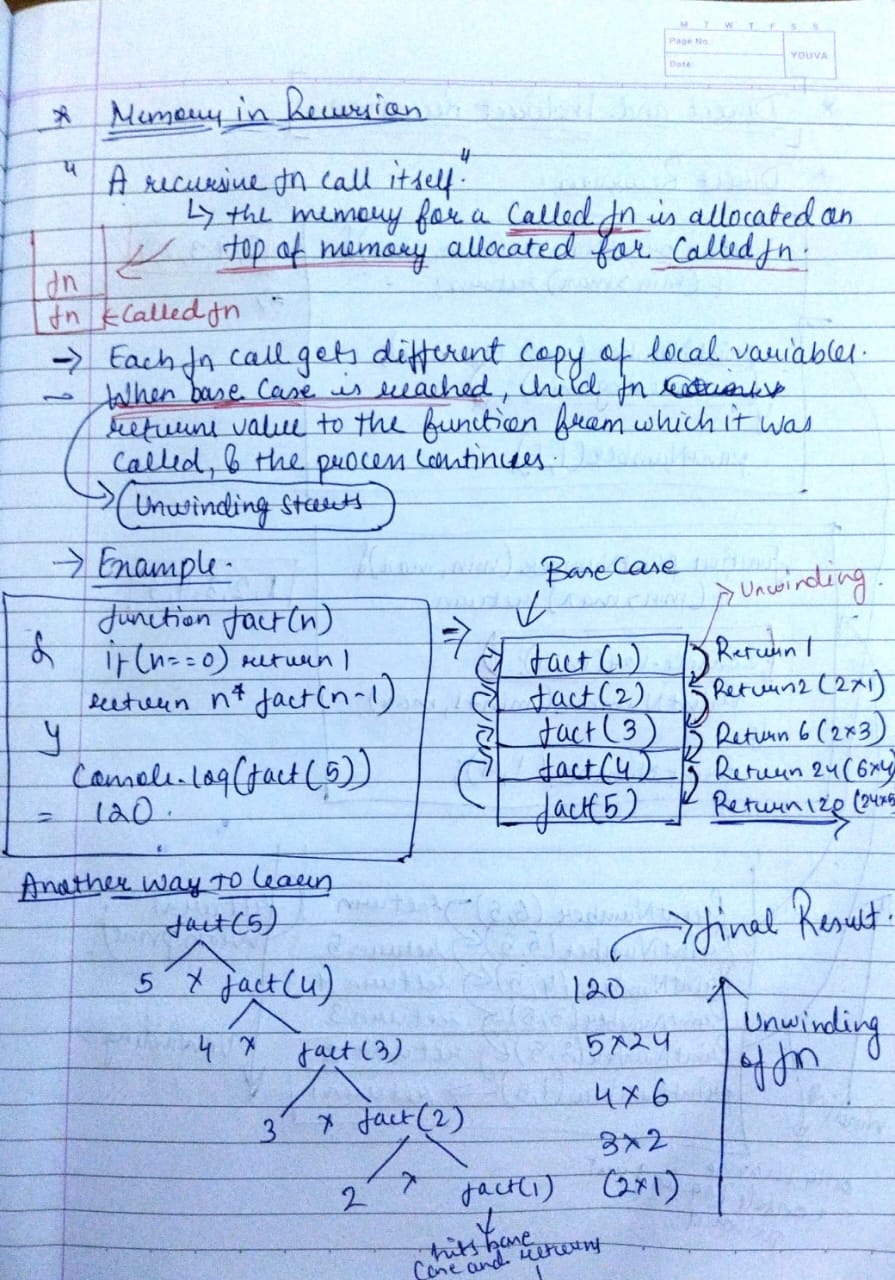 M T W T F S S
Page No.:
Date:
YOUVA
* Memory in Recursion
" A recursive fn call itself."
↳ the memory for a called fn is allocated on
top of memory allocated for Called fn.
fn
fn ← Called fn
→ Each fn call gets different copy of local variables.
→ When base Case is reached, child fn
returns value to the function from which it was
called, & the process continues.
Unwinding starts
→ Example.
function fact(n)
{ if(n==0) return 1
return n* fact(n-1)
}
Console.log(fact(5))
= 120.
⇒
Base Case
Unwinding.
fact(1) Return 1
fact(2) Return 2 (2×1)
fact(3) Return 6 (2×3)
fact(4) Return 24 (6×4)
fact(5) Return 120 (24×5
Another way to learn
fact(5)
5 × fact(4)
4 × fact(3)
3 × fact(2)
2 × fact(1)
hits base
Case and returns
1
final Result.
120
5×24
4×6
3×2
(2×1)
Unwinding
of fn